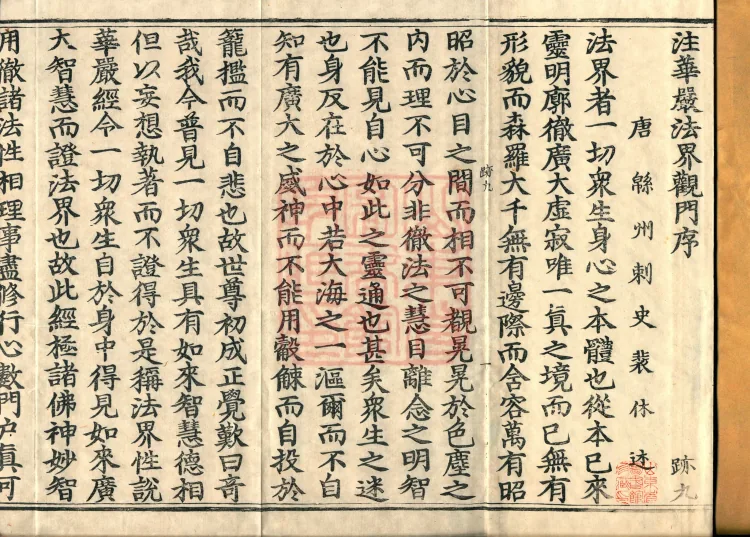 注華嚴法界觀門序
跡九
唐緜州刺史裴休述
法界者一切衆生身心之本體也從本已來
靈明廓徹廣大虛寂唯一真之境而已無有
形貌而森羅大千無有邊際而含容萬有昭
跡九
昭於心目之間而相不可覩晃晃於色塵之
内而理不可分非徹法之慧目離念之明智
不能見自心如此之靈通也甚矣衆生之迷
也身反在於心中若大海之一漚爾而不自
知有廣大之威神而不能用觳觫而自投於
籠檻而不自悲也故世尊初成正覺歎曰奇
哉我今普見一切衆生具有如來智慧德相
但以妄想執著而不證得於是稱法界性說
華嚴經令一切衆生自於身中得見如來廣
大智慧而證法界也故此經極諸佛神妙智
用徹諸法性相理事盡修行心數門户真可